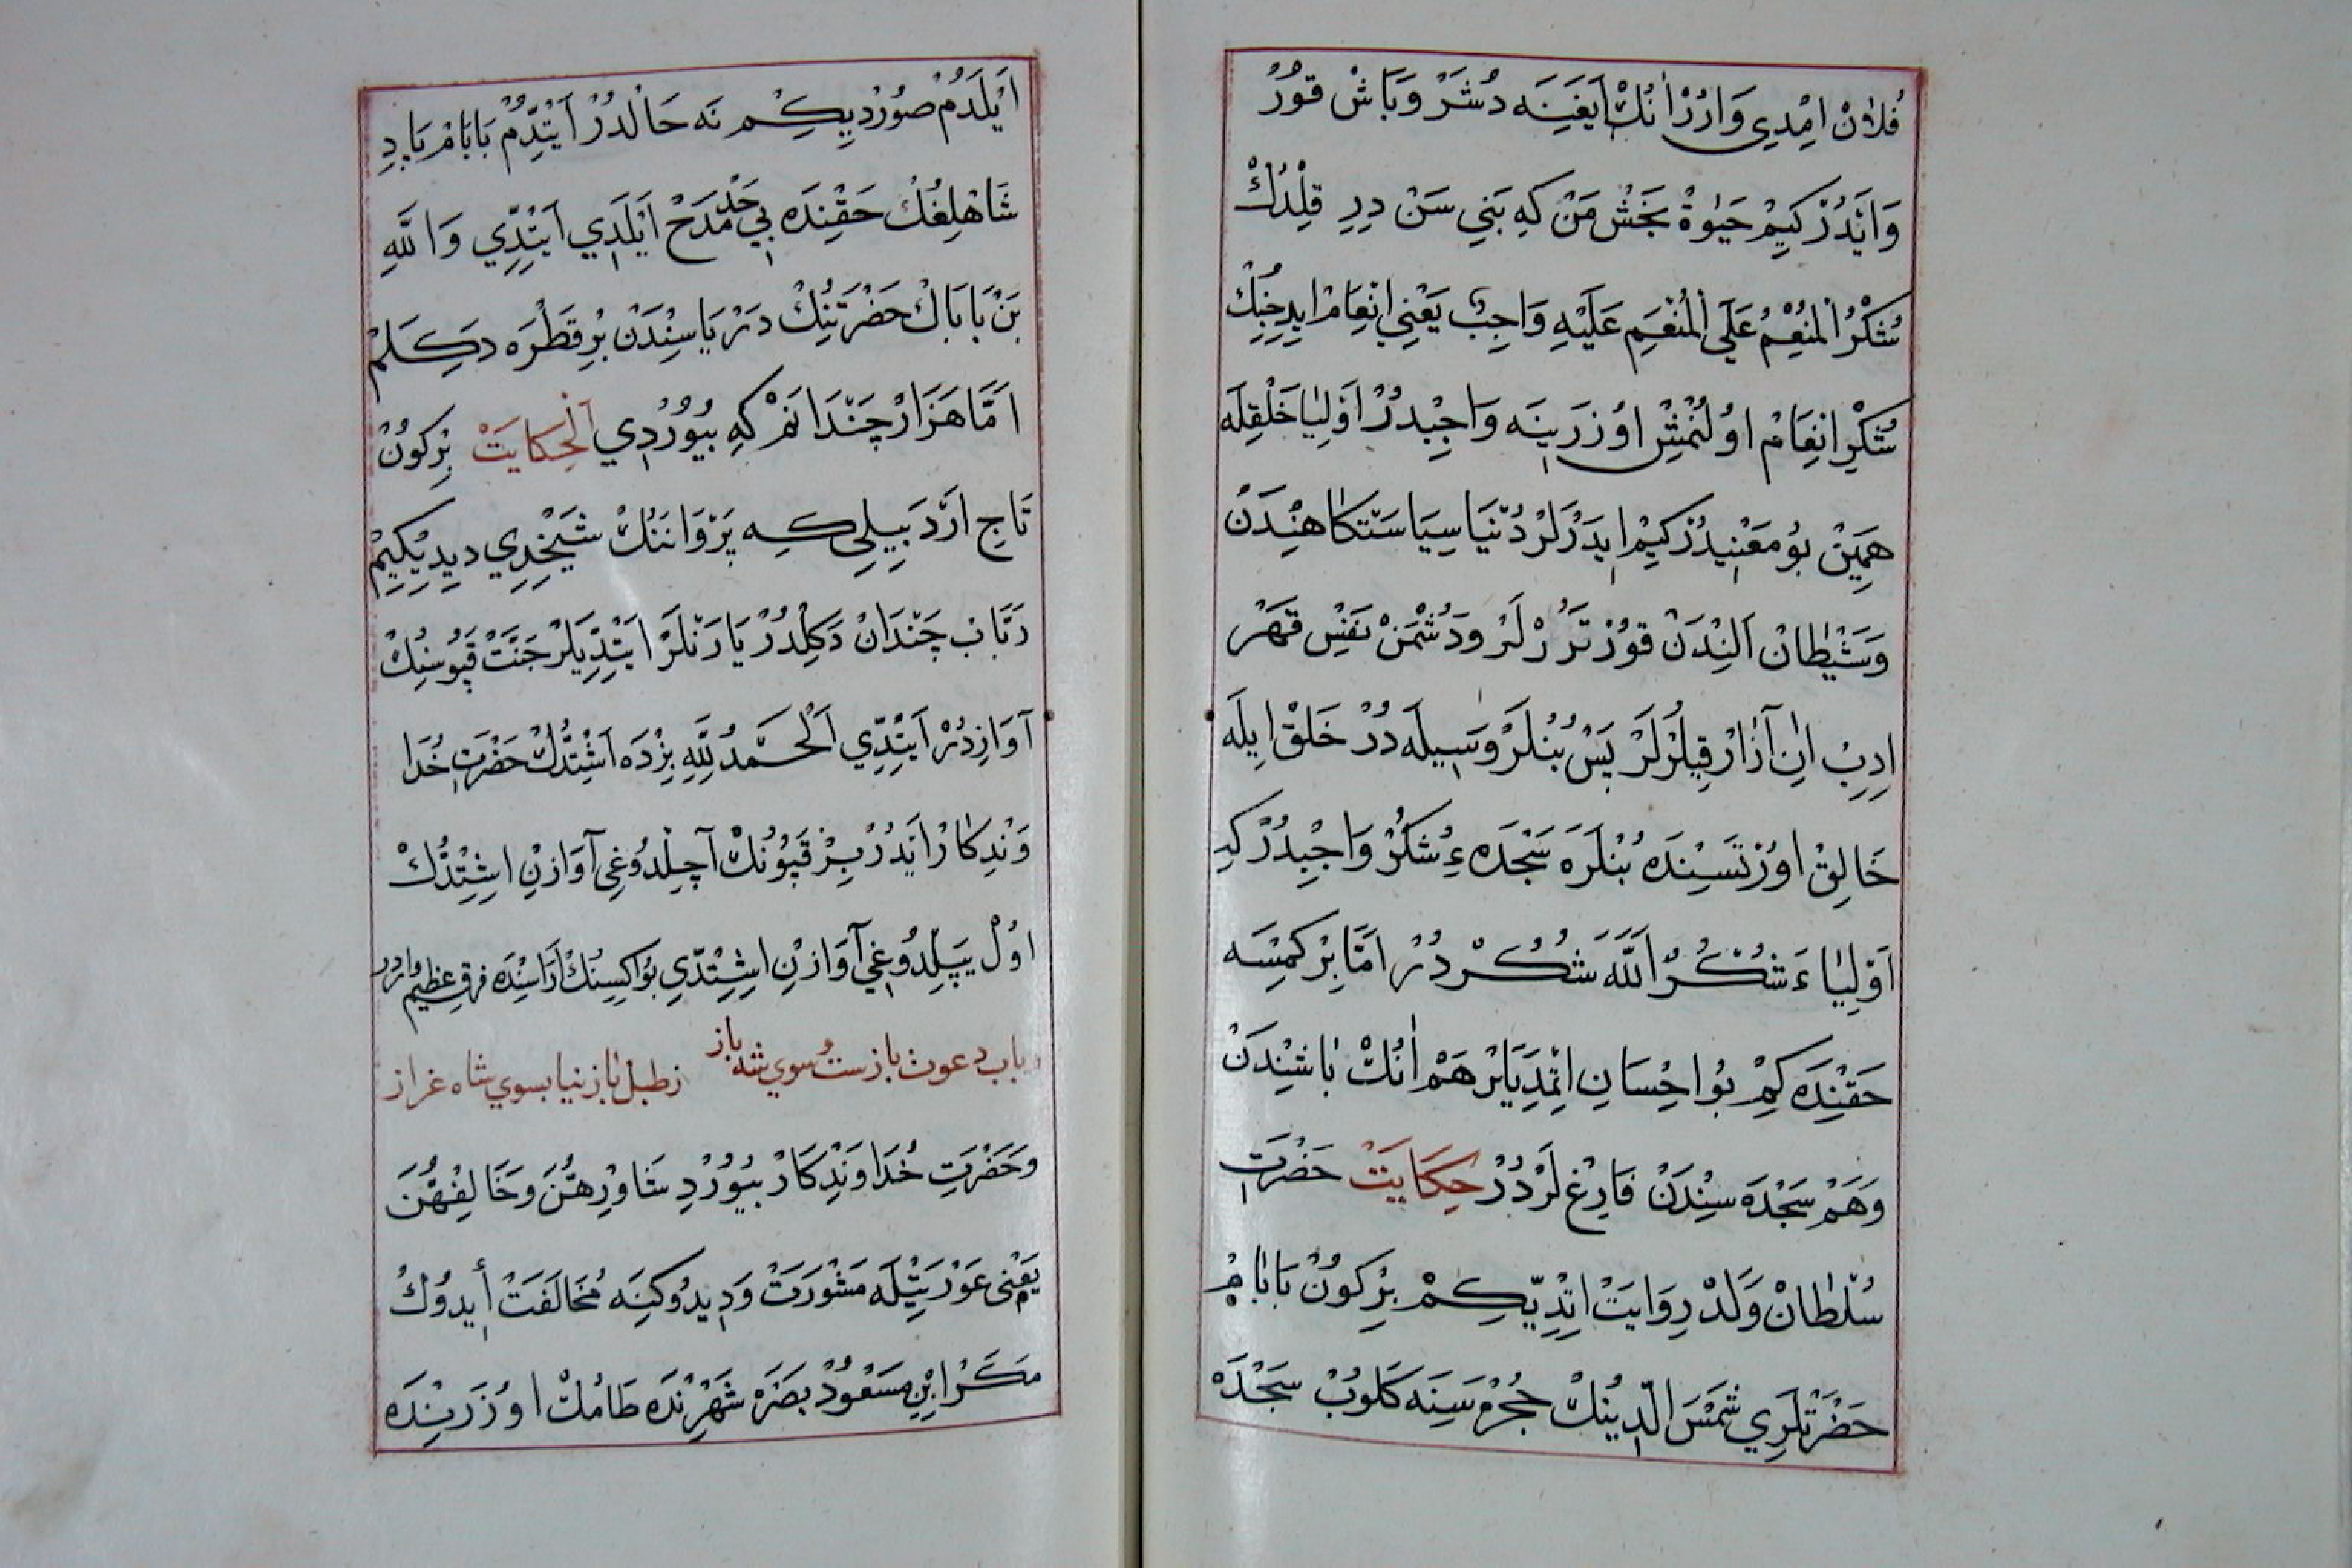 فُلَانْ اِمْدِي وَارُرْ اَنُكْ اَيَغِنَه دُشَرْ وَبَاشْ قُورْ
وَاَيْدُرْ كِيمْ حَيٰوةْ بَخَشْ مَنْ كِهِ بَنِي سَنْ دِرِ قِلْدُكْ
شُكْرُ الْمُنْعِمْ عَلَي الْمُنْعَمِ عَلَيْهِ وَاجِبْ يَعْنِي اِنْعَامْ ايدِجِنِكْ
شُكْرِ اِنْعَامْ اوُلُنْمِشْ اوُزَرِينَه وَاجِبْدُرْ اَوْلِيَا خَلْقِلَه
هَمِينْ بُو مَعْنِيدُرْ كِيمْ ايدَرْلَرْ دُنْيَا سِيَاسَتْكَاهِنْدَنْ
وَشَيْطَانْ اَلِنْدَنْ قُورْتَرُرْلَرْ وَدُشْمَنْ نَفْسِ قَهَرْ
اِدِبْ اَنِ آزَارْ قِيلُرْلَرْ پَسْ بُنْلَرْ وَسِيلَه دُرْ خَلْقْ اِيلَه
خَالِقْ اوُرْتَسِنْدَه بُنْلَرَه سَجْدَهءِ شُكُرْ وَاجِبْدُرْ كِه
اَوْلِيَاءَ شُكُرْ اَللّٰهَ شُكُرْدُرْ اَمَّا بِرْ كِمْسَه
حَقِنْدَه كِمْ بُو اِحْسَانِ اِتْمِدِيَلَرْ هَمْ اَنُكْ بَاشِنْدَنْ
وَهَمْ سَجْدَه سِنْدَنْ فَارِغْلَرْدُرْ حِكَايَتْ حَضْرَتِ
سُلْطَانْ وَلَدْ رِوَايَتْ اِتْدِيكِمْ بِرْ كُونْ بَابَامْ
حَضْرَتْلَرِي شَمْسَ الدِّينُكْ حُجْرَه سِنَه كَلُوبْ سَجْدَه
اَيْلَدُمْ صُورْدِيكِمْ نَه حَالْدُرْ اَيْتْدِمْ بَابَامْ پَادِ
شَاهْلِغُكْ حَقِنْدَه بِي حَدْ مَدَحْ اَيْلَدِي اَيْتْدِي وَاللّٰهِ
بَنْ بَابَاكْ حَضْرَتِنُكْ دَرْيَاسِنْدَنْ بِرْ قَطْرَه دَكِلَمْ
اَمَّا هَزَارْ چَنْدَانَمْ كِهِ بُيُورْدِي اَلْحِكَايَتْ بِرْ كُونْ
تَاجِ اَرْدَبِيلِي كِه پَرْوَانَنُكْ شَيْخِيدِي دِيدِيكِيمْ
رَبَابْ چَنْدَانْ دَكِلْدُرْ يَارَنْلَرْ اَيْتْدِيلَرْ جَنَّتْ قَپُوسِنُكْ
آوَازِدُرْ اَيْتْدِي اَلْحَمْدُ لِلّٰهِ بِزْدَه اَشِتْدُكْ حَضْرَتِ خُدَا
وَنْدِكَارْ اَيْدُرْ بِزْ قَپُونُكْ آچِلْدُوغِي آوَازِنْ اِشِتْدُكْ
اوُلْ يَپِلْدُوغِي آوَازِنْ اِشِتْدِي بُو اِكِسِنُكْ اَرَاسِنْدَه فرق عظيم واردر
رباب دعوت بازست سوي شه باز زطبل باز نيايد بسوي شاه غراز
وَحَضْرَتِ خُدَاوَنْدِكَارْ بُيُورْدِ شَاوِرُهُنَّ وَخَالِفُهُنَّ
يَعْنِى عَوْرَتِيلَه مَشْوَرَتْ وَدِيدُوكِنَه مُخَالَفَتْ اُيدُوكْ
مَكَرْ اِبْنِ مَسْعُودْ بَصَرَه شَهْرِنْدَه طَامُكْ اوُزَرِينْدَه